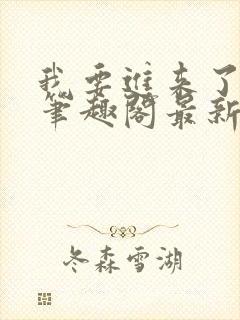 我要进来了
笔趣阁最新
冬森雪湖